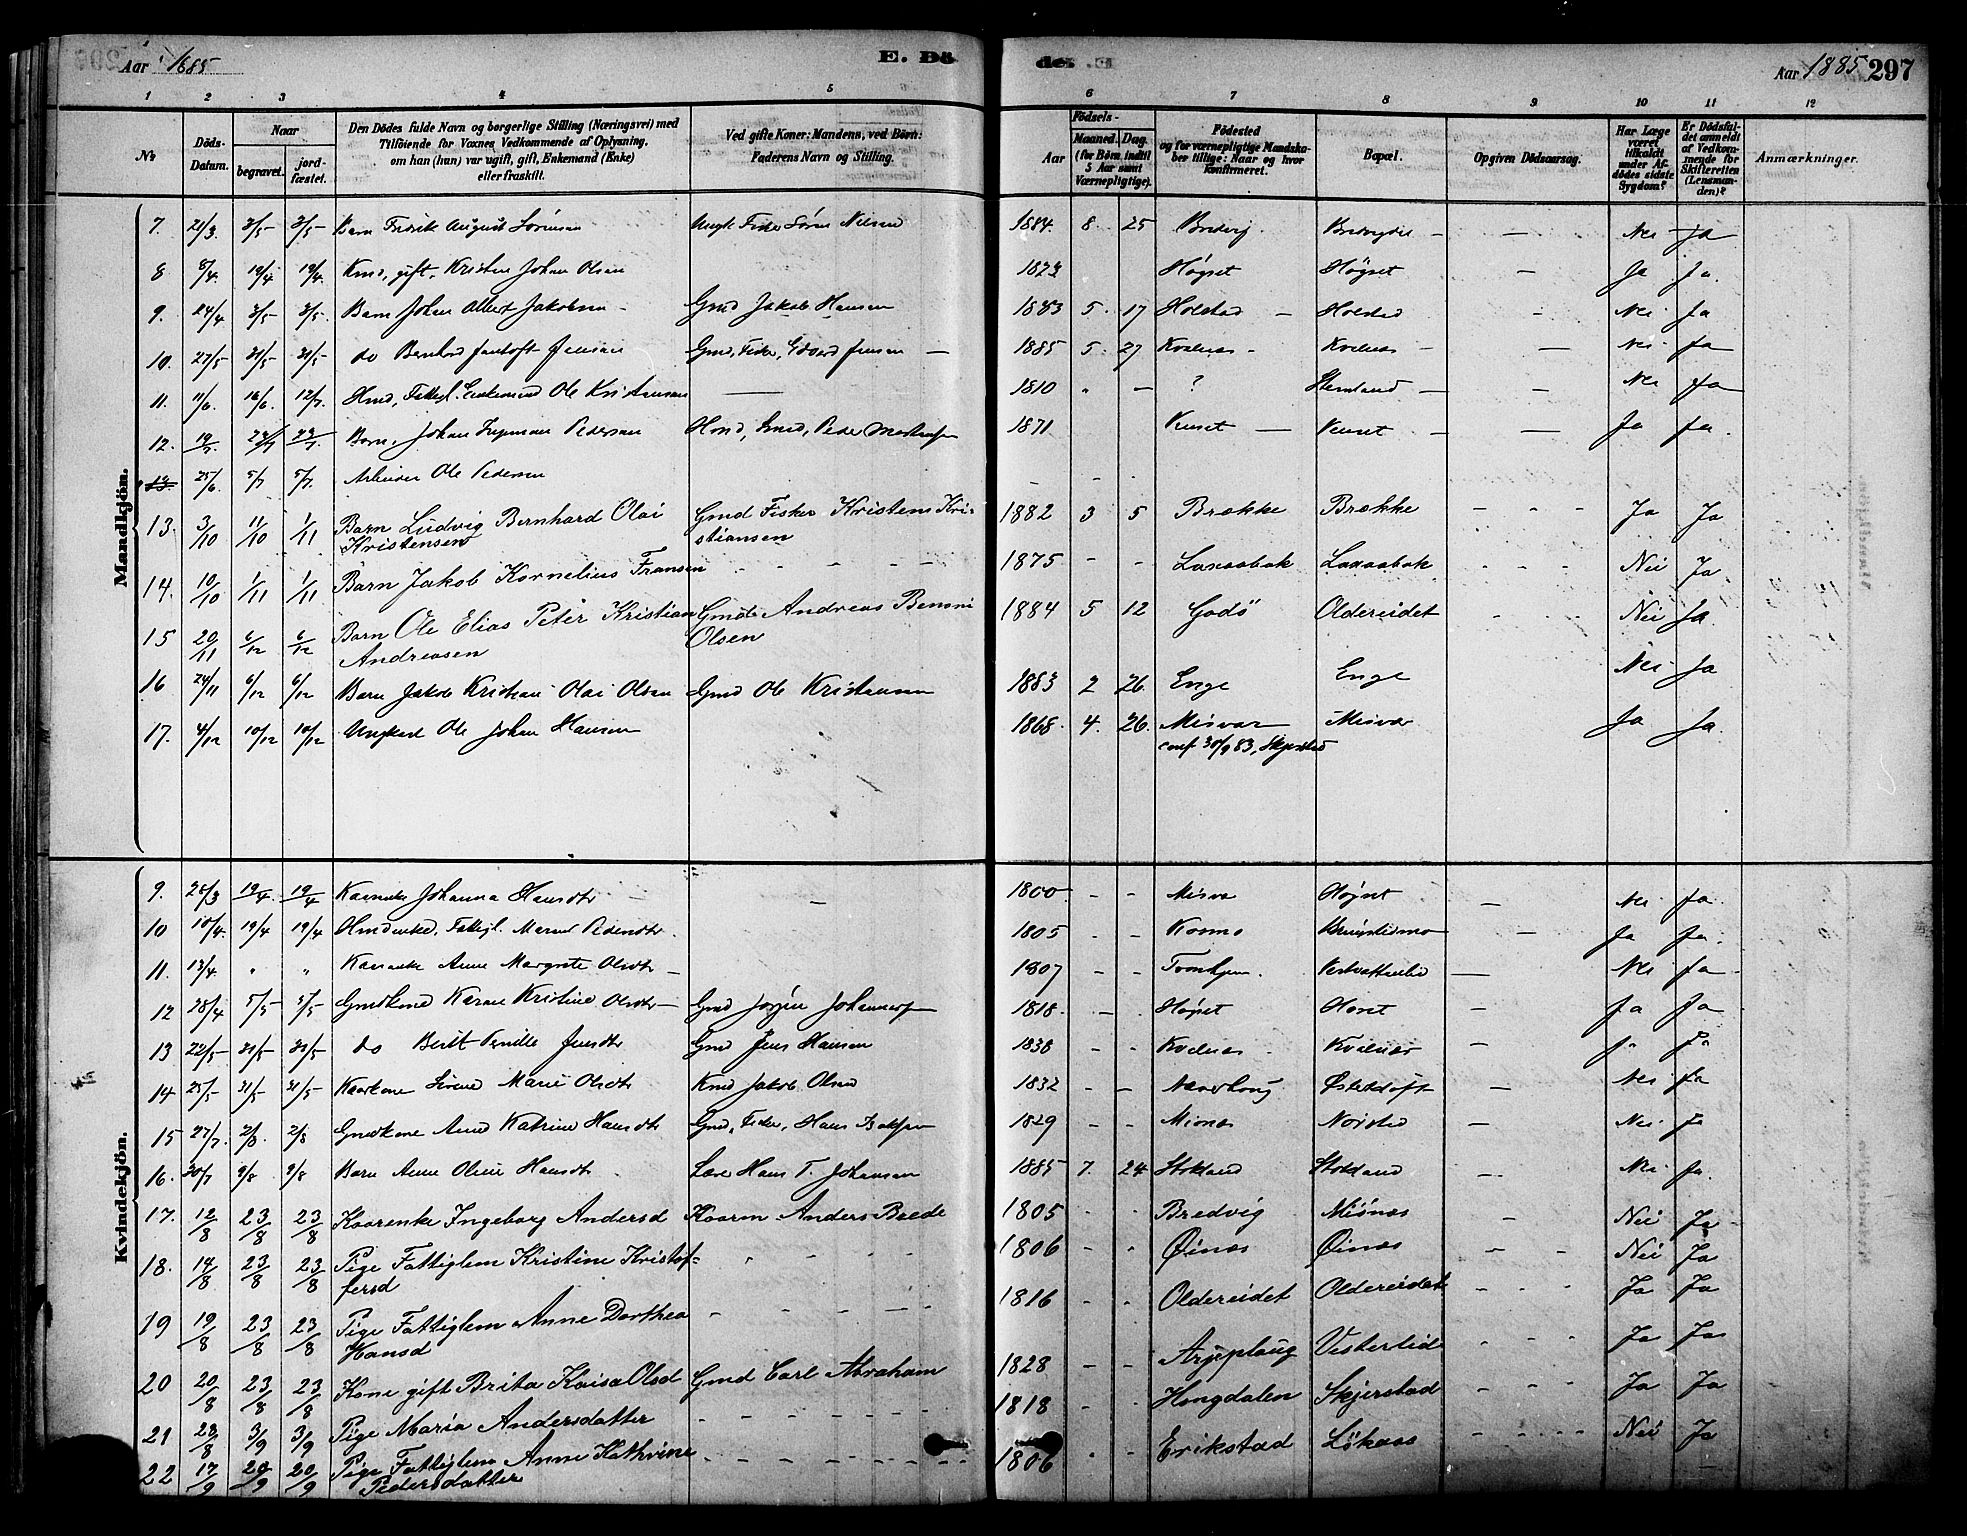 Aar 1885
E. Dö
de. E
Aar 1885 297
1 2 3 4 5 6 7 8 9 10 11 12
No
Döds-Datum.
Naar
begravet.
jord-fæstet.
Den Dödes fulde Navn og borgerlige Stilling (Næringsvei) med
Tilföiende for Voxnes Vedkommende af Oplysning,
om han (hun) var ugift, gift, Enkemand (Enke)
eller fraskilt.
Ved gifte Koner: Mandens, ved Börn:
Faderens Navn og Stilling.
Födsels-
Aar
Maaned. Dag.
(for Börn indtil
5 Aar samt
Værnepligtige).
Födested
og for værnepligtige Mandska-
ber tillige: Naar og hvor
konfirmeret.
Bopæl.
Opgiven Dödsaarsag.
Har Læge
været
tilkaldt
under Af-
dödes sidste
Sygdom?
Er Dödsfal-
det anmeldt
af Vedkom-
mende for
Skifteretten
(Lensman-
den)?
Anmærkninger.
Mandkjön.
7. 21/3. 3/5 3/5 Barn Fredrik August Sörensen Ungk Fisker Sören Nilsen 1884. 8. 25 Bredvig Nei Ja
8 8/4. 19/4 19/4. Kmd, gift, Kristen Johan Olsen 1823 Högset Högset Ja Ja.
9. 24/4 3/5 3/5. Barn Johan Albert Jakobsen Gmd Jakob Hansen 1883 5. 17 Holstad Holstad Nei Ja
10. 27/5 31/5 31/5 do Bernhard Jentoft Jensen Gmd, Fisker, Edvard Jensen 1885 5. 27 Kvalnæs Kvalnæs Nei Ja
11. 11/6. 16/6. 12/7. Hmd, Fattigl. Enkemand Ole Kristiansen 1810 " - ? Nei Ja
12. 19/7 Barn, Johan Ingeman Pedersen Hmd, Smed, Peder 1871 Ja Ja.
13. 25/6 5/7 5/7. Arbeider Ole Pedersen
13. 3/10 11/10 1/11 Barn Ludvig Bernhard Olai Gmd Fisker Kristen Kri- 1882 3 5 Brække Brække Ja Ja
Kristensen stiansen
14. 10/10 1/11 1/11 Barn Jakob Kornelius Fransen 1875 - - Laxaabak Laxaabak Nei Ja
15 20/11 6/12 6/12 Barn Ole Elias Peter Kristian Gmd Andreas Benoni 1884 5 12 Godö Oldereidet Nei Ja
Andreasen Olsen
16 24/11 6/12 6/12 Barn Jakob Kristian Olai Olsen Gmd Ole Kristiansen 1883 2 26. Enge Enge Nei Ja
17. 4/12 10/12 10/12 Ungkarl Ole Johan Hansen 1868. 4. 26. Misvær Misvær Ja Ja.
conf 30/9 83, Skjerstad
Kvindekjön.
9. 26/3 19/4. 19/4 Kaarenke Johanna Hansdtr 1800 - - Misvær Högset Nei Ja.
10 10/4. 19/4 19/4 Hmdenke, Fattigl. Maren Pedersdtr. 1805 - - Kosmo Ja Ja.
11. 13/4 " " Kaarenke Anne Margrete Olsdtr 1807 - - Tronhjem. Nei Ja
12 28/4 5/5 5/5 Gmdkone Karen Kristine Olsdtr Gmd Jörgen Johannesen 1818. - Högset Ja Ja
13 22/5 31/5 31/5 do Berit Pernille Jensdtr Gmd Jens Hansen 1838 - - Kvalnæs Kvalnæs Ja Ja
14 25/5 31/5 31/5 Kaarkone Sirene Marie Olsdtr Kmd Jakob Olsen 1832 - - Næverhaug Nei Ja
15 27/7. 2/8. 2/8 Gmdkone Anne Katrine Hansdtr Gmd, Fisker, Hans 1829 - - Misnæs Nei Ja
16. 30/7 9/8 9/8 Barn Anne Oline Hansdtr Lærer Hans T. Johansen 1885 7. 24 Stokland Stokland Nei Ja.
17. 12/8 23/8 23/8 Kaarenke Ingeborg Andersd Kaarm. Anders Brede 1805 - - Bredvig Misnæs Nei Ja
18. 14/8 23/8 23/8 Pige Fattiglem Kristine Kristof- 1806 - - Øinæs Øinæs Nei Ja
fersd
19 19/8 23/8 23/8 Pige Fattiglem Anne Dorthea 1816 - - Oldereidet Oldereidet Ja Ja
Hansd
20 20/8 23/8 23/8 Kone gift Brita Kaisa Olsd Gmd Carl Abraham 1828 - - Arjeplaug Vesterlid Ja Ja
21 23/8 3/9 3/9 Pige Maria Andersdatter 1818 - - Hongdalen Skjerstad Ja Ja
22 17/9 20/9 20/9 Pige Fattiglem Anne Kathrine 1806 - Erikstad Lökaas Nei Ja
Pedersdatter